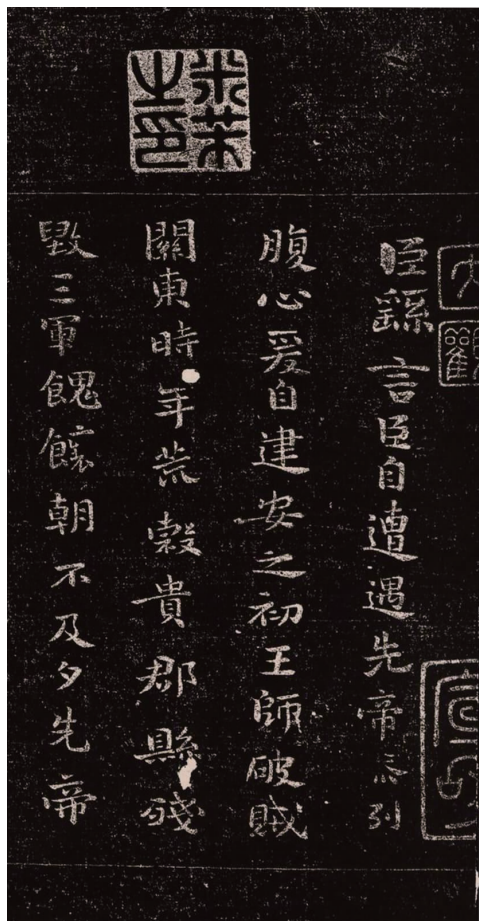 大觀
臣繇言臣自遭遇先帝忝列
腹心爰自建安之初王師破賊
關東時年荒穀貴郡縣殘
毀三軍餽饟朝不及夕先帝
米芾之印